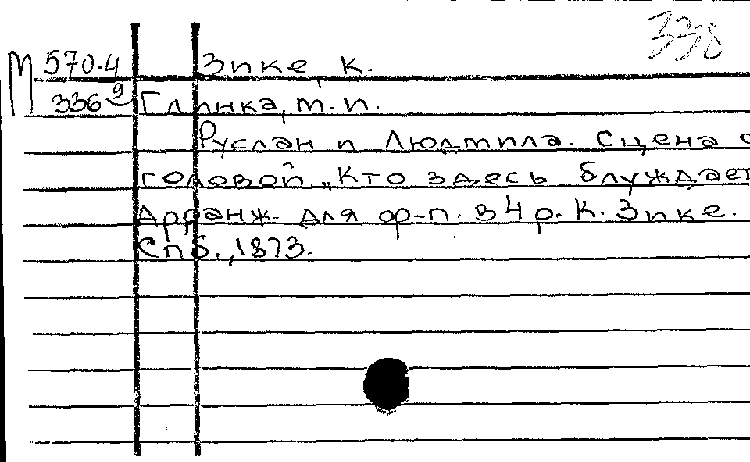 338
М 570-4 Зике, К.
336 9 Глинка, М. И.
Руслан и Людмила. Сцена с
головой „Кто здесь блуждает
Арранж. для ф-п. в 4 р. К. Зике.
Спб., 1873.